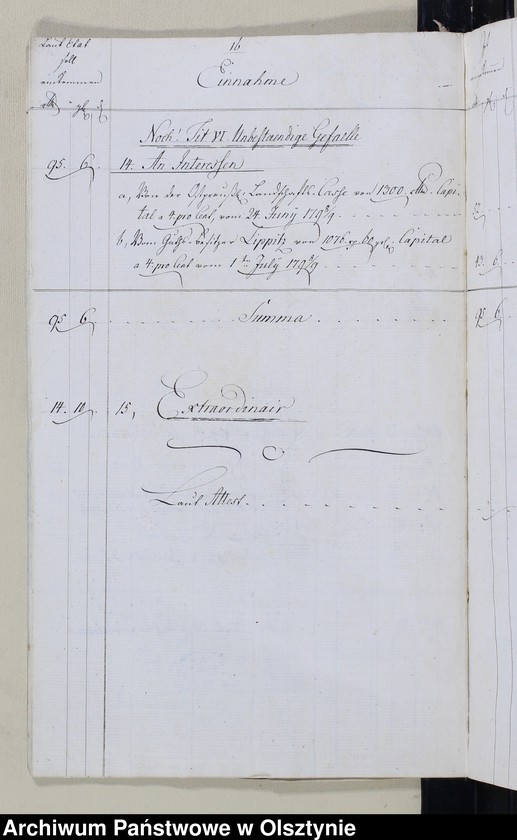 16
Laut Etat
soll
einkommen
Einnahme
Noch! Tit VI Unbestaendige Gefaelle
95 6 14. An Interessen
a, Von der Ostpreuß. Landschafts-Casse von 1300 rtl. Capi-
tal a 4 pro Cent, vom 24 Juny 1798/9
b, Vom Guths-Besitzer Lippitz von 1076 Capital
a 4 pro Cent vom 1ten July 1798/9 43 6
95 6 Summa 95 6
14. 10 15, Extraordinair
Laut Attest
Archiwum Państwowe w Olsztynie